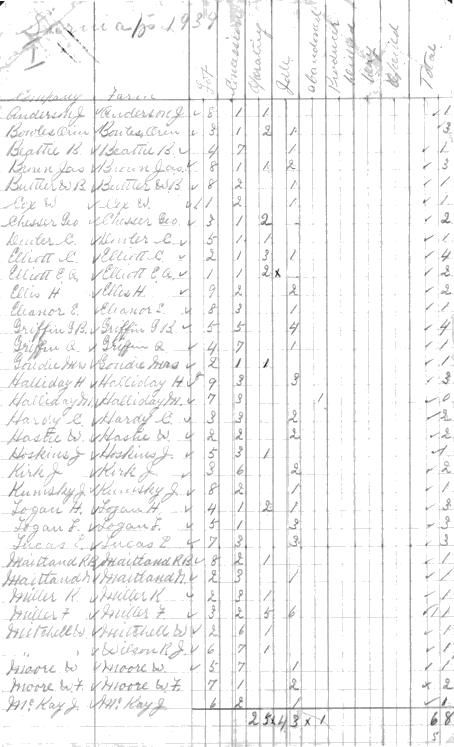 1939
I
Company Farm Lot Concession Operating Idle Abandoned Producer Total
Anderson J Anderson J. ✓ 8 1 1 ✓ 1
Bowles Orin Bowles Orin ✓ 3 1 2 1 ✓ 3
Beattie B. ✓ Beattie B. ✓ 4 7 1 ✓ 1
Brown Jas ✓ Brown Jas. ✓ 8 1 1 2 ✓ 3
Buttler W B ✓ Buttler W B ✓ 8 2 1 ✓ 1
Cox W ✓ Cox W. 1 2 1 ✓ 1
Chesser Geo ✓ Chesser Geo. ✓ 3 1 2 ✓ 2
C. ✓ C. ✓ 5 1 1 ✓ 1
Elliott C. ✓ Elliott C. ✓ 2 1 3 1 ✓ 4
Elliott E A ✓ Elliott E. A. ✓ 1 1 2 x ✓ 2
Ellis H ✓ Ellis H. ✓ 9 2 2 ✓ 2
Eleanor E. ✓ Eleanor E. 8 3 1 ✓ 1
Griffin G B. ✓ Griffin G B. ✓ 5 5 4 ✓ 4
Griffin Q ✓ Griffin Q ✓ 4 7 1 ✓ 1
Goudie Mrs ✓ Goudie Mrs ✓ 2 1 1 ✓ 1
Halliday H ✓ Halliday H. 9 3 3 ✓ 3
Halliday M. ✓ Halliday M. ✓ 7 3 1 ✓ 0
Hardy C. ✓ Hardy C. ✓ 3 3 2 ✓ 2
Hastie W. ✓ Hastie W. ✓ 2 2 2 ✓ 2
Hoskins J ✓ Hoskins J. ✓ 5 3 1 ✓ 1
Kirk J ✓ Kirk J ✓ 3 6 2 ✓ 2
Kumsky J. ✓ Kumsky J. ✓ 8 2 1 ✓ 1
Logan H. ✓ Logan H. ✓ 4 1 2 1 ✓ 3
Logan F. ✓ Logan F. ✓ 5 1 3 ✓ 3
Lucas E ✓ Lucas E ✓ 7 3 3 ✓ 3
Maitland R B. ✓ Maitland R B. ✓ 8 2 1 ✓ 1
Maitland N ✓ Maitland N. ✓ 2 3 1 ✓ 1
Miller R ✓ Miller R ✓ 2 3 1 ✓ 1
Miller F ✓ Miller F ✓ 3 2 5 6 ✓ 11
Mitchell W. ✓ Mitchell W ✓ 2 6 1 ✓ 1
" " ✓ Wilson R. J. ✓ 6 7 1 ✓ 1
Moore W ✓ Moore W. ✓ 5 7 1 ✓ 1
Moore W F. ✓ Moore W F. ✓ 7 1 2 x 2
McKay J. ✓ McKay J ✓ 6 2 1 ✓ 1
25 x 43 x 1 68
5